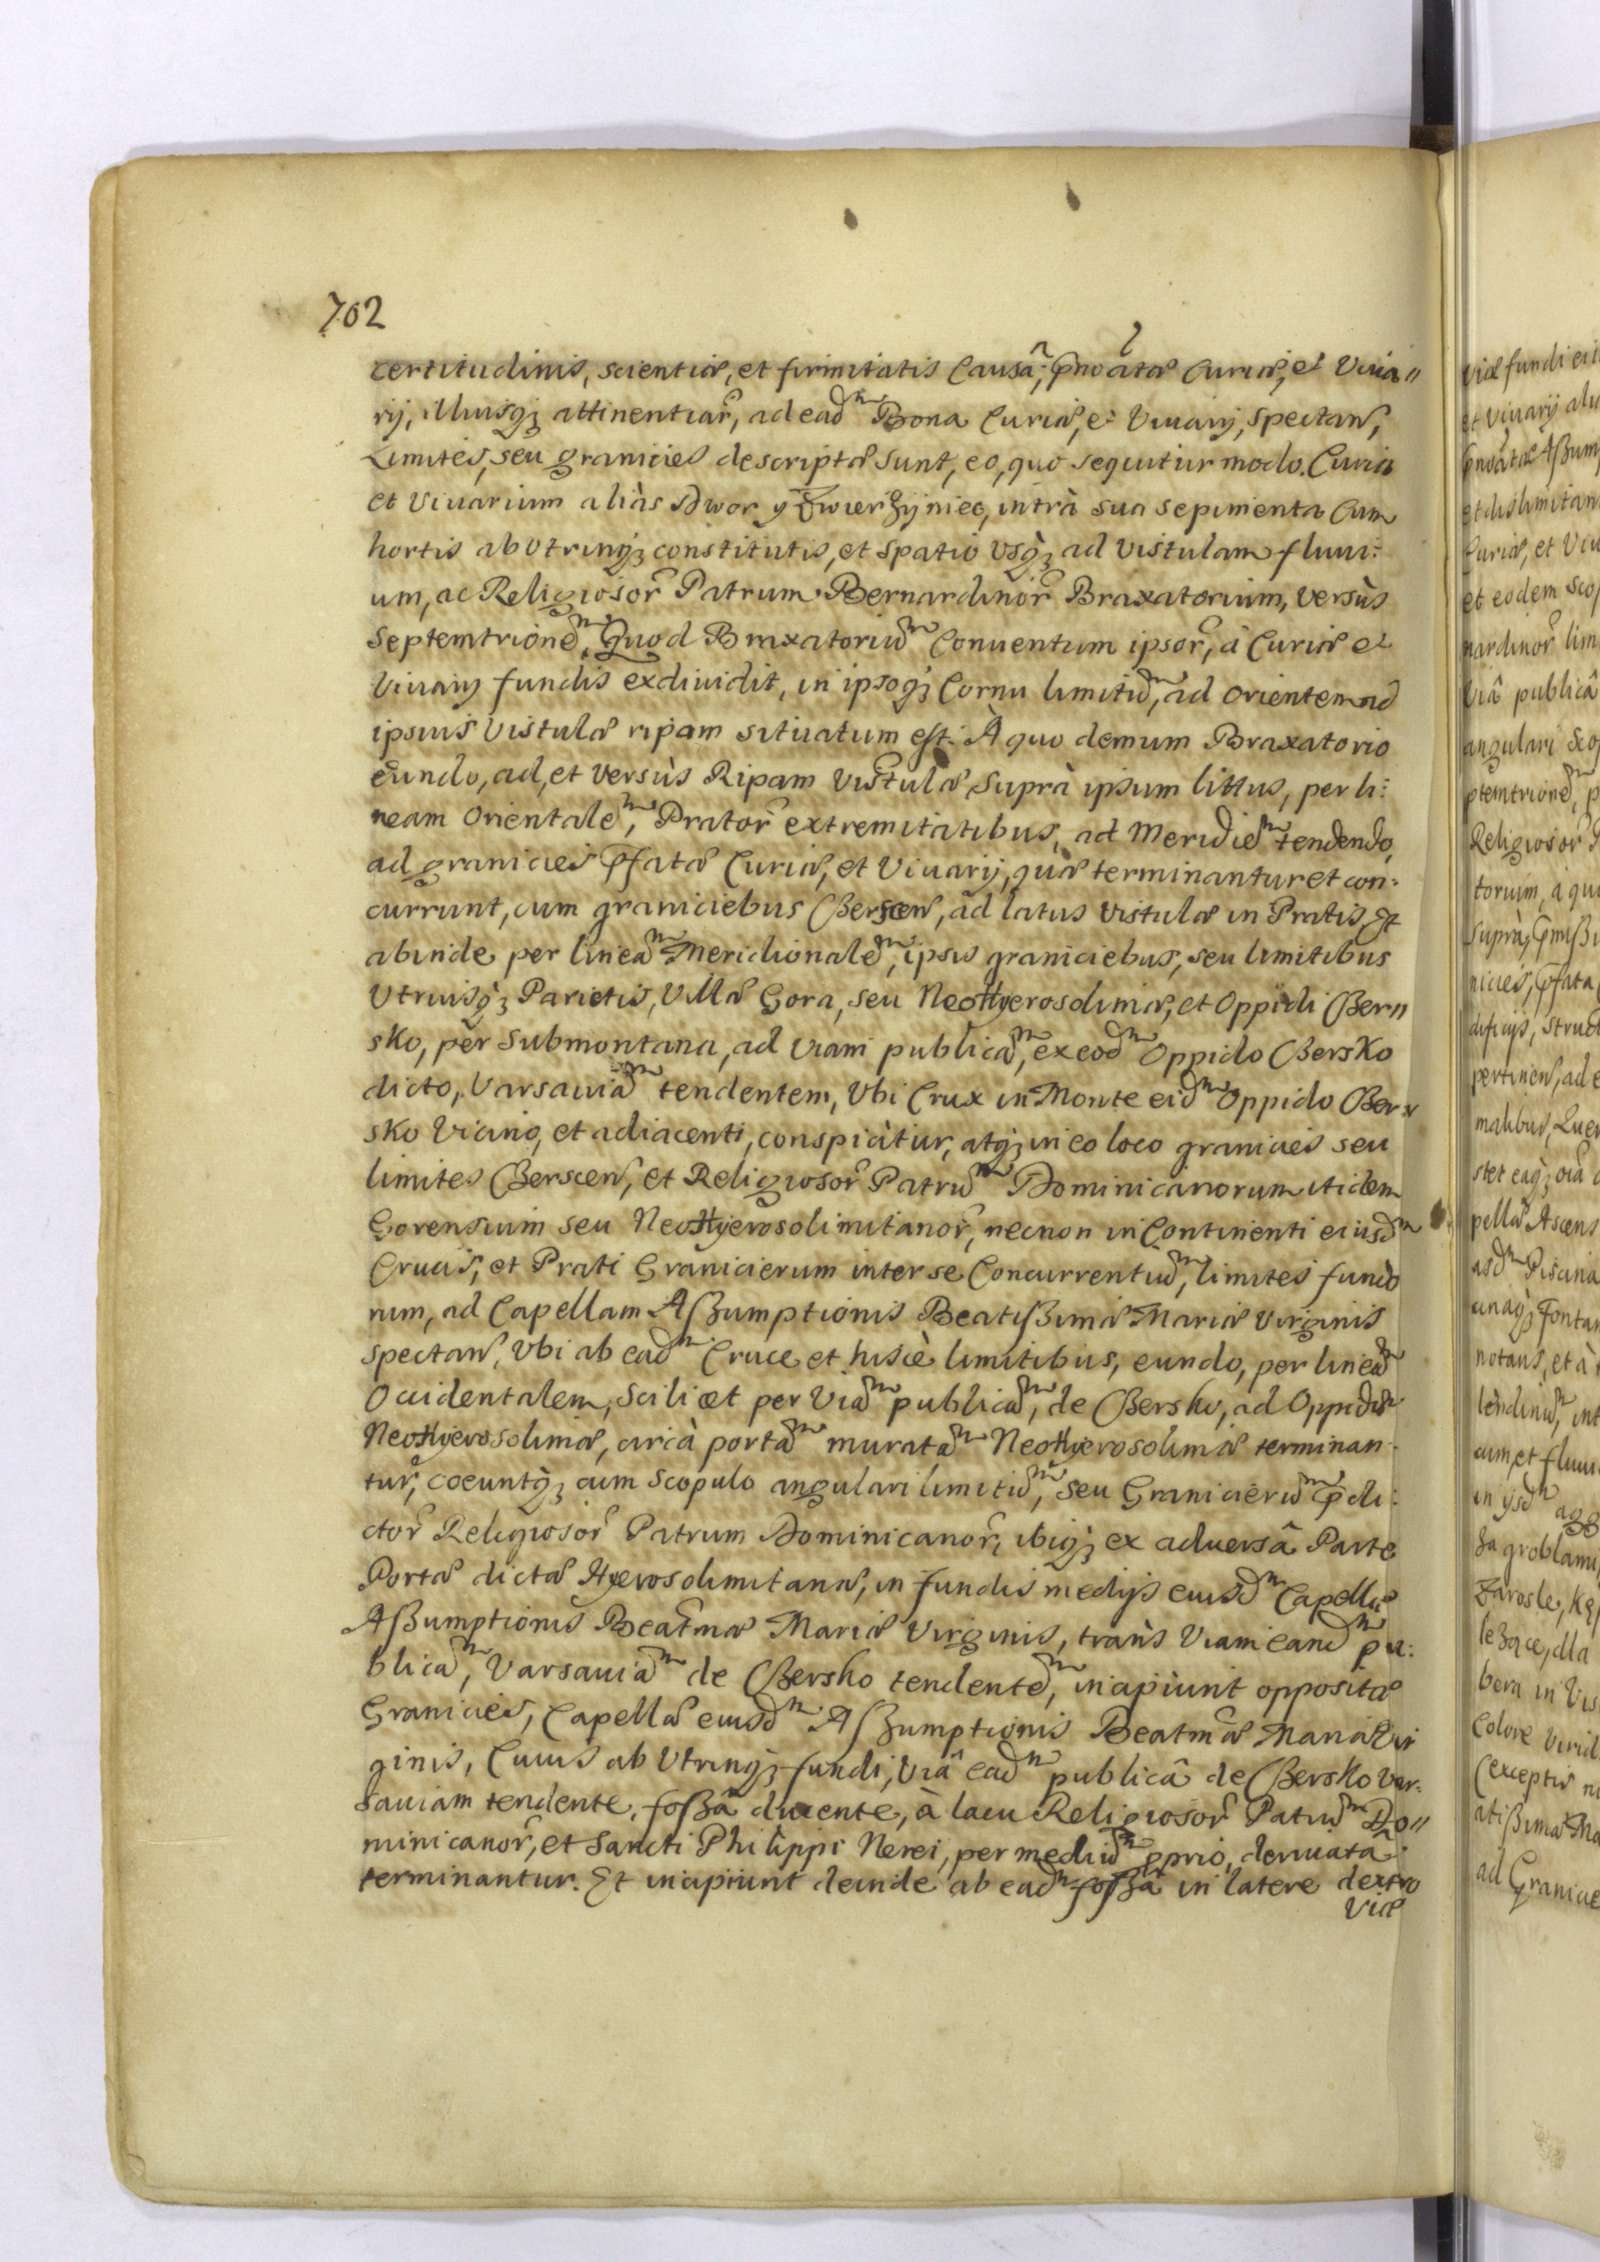 702
certitudinis, scientiæ, et firmitatis Causâ, p̃noãtæ Curiæ, et Viua〃
rij, Illiusq3 attinentiar̃, ad eadm̃ Bona Curiæ, et Viuarij, spectan̄,
Limites, seu granicies descriptæ sunt, eo, quo sequitur modo. Curia
et Viuarium aliàs Dwor y Zwierzyniec, intrà sua sepimenta Cum
hortis ab Utrinq3 constitutis, et spatio Usq3 ad Vistulam fluui:
um, ac Religiosor̃ Patrum Bernardinor̃ Braxatorium, versùs
Septemtrionem̃, Quod Braxatorium̃ Conuentum ipsor̃, à Curiæ et
Viuarij fundis exdiuidit, in ipsoq3 Cornu limitum̃, ad Orientem ad
ipsius Vistulæ ripam situatum est. À quo demum Braxatorio
eundo, ad, et versùs Ripam Vistulæ suprà ipsum littus, per li:
neam Orientalem̃, Prator̃ extremitatibus, ad Meridiem̃ tendendo,
ad granicies p̃fatæ Curiæ, et Viuarij, quæ terminantur et con:
currunt, cum graniciebus Cberscen̄, ad latus Vistulæ in Pratis, Et
abinde per lineam̃ Meridionalem̃, ipsis graniciebus, seu limitibus
Utriusq3 Parietis, Villæ Gora, seu NeoHyerosolimæ, et Oppidi Cber〃
sko, per submontana, ad viam publicam̃, ex eodm̃ Oppido Cbersko
dicto, Varsauiam̃ tendentem, Ubi Crux in Monte eidm̃ Oppido Cber〃
sko Vicino, et adiacenti, conspicitur, atq3 in eo loco granicies seu
limites Cberscen̄, et Religiosor̃ Patrum̃ Dominicanorum itidem
Gorensium seu NeoHyerosolimitanor̃, necnon in Continenti eiusdm̃
Crucis, et Prati Granicierum inter se Concurrentium̃, limites fundo
rum, ad Capellam Aſsumptionis Beatiſsimæ Mariæ Virginis
spectan̄, Ubi ab eadm̃ Cruce et hisce limitibus, eundo, per lineam̃
Occidentalem, scilicet per Viam̃ publicam̃, de Cbersko, ad Oppidum̃
NeoHyerosolimæ, circà portam̃ muratam̃ NeoHyerosolimæ terminan-
tur, coeuntq3 cum scopulo angulari limitum̃, seu Granicierum̃ p̃di:
ctor̃ Religiosor̃ Patrum Dominicanor̃, ibiq3 ex aduersâ Parte
Portæ dictæ Hyerosolimitanæ, in fundis medijs eiusdm̃ Capellæ
Aſsumptionis Beatm̃æ Mariæ Virginis, trans Viam eandm̃ pu:
blicam̃, Varsauiam̃ de Cbersko tendentem̃, incipiunt oppositæ
Granicies, Capellæ eiusdm̃ Aſsumptionis Beatm̃æ Mariæ Vir
ginis, Cuius ab Utrinq3 fundi, Viâ eadm̃ publicâ de Cbersko Var:
sauiam tendente, foſsâ ducente, à lacu Religiosor̃ Patrum̃ Do〃
minicanor̃, et Sancti Philippi Nerei, per medium̃ p̱prio, deriuata
terminantur. Et incipiunt deinde ab eadm̃ foſsâ in latere dextro
Viæ